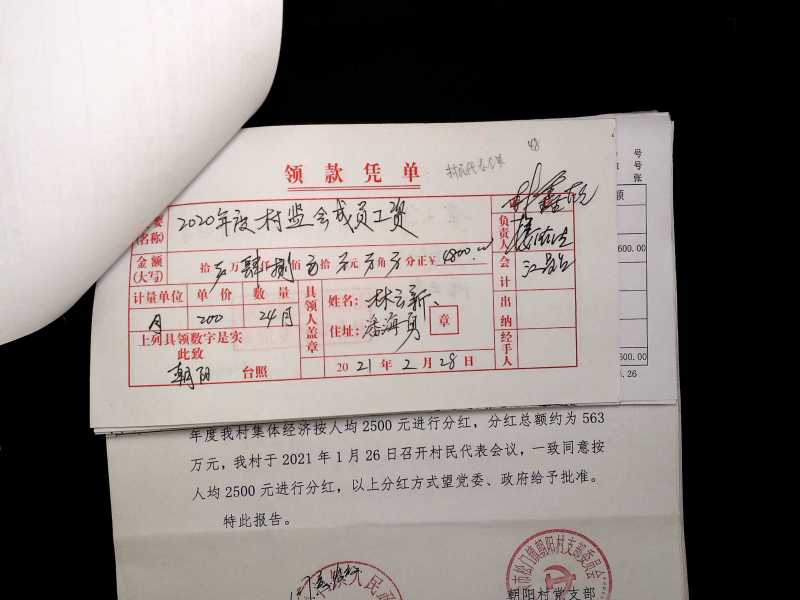 48
领款凭单
号
号
张
额
要
(名称)
2020年度村监会成员工资
负责人
600.00
金额
(大写)
拾 万肆仟捌佰 拾 元 角 分正￥4800.00
会计
计量单位 单价 数量
具领人盖章
姓名：林云新、
潘海勇
住址：
章
月 200 24月
出纳
上列具领数字是实
此致
朝阳 台照
2021年2月28日
经手人
600.00
.26
年度我村集体经济按人均2500元进行分红，分红总额约为563
万元，我村于2021年1月26日召开村民代表会议，一致同意按
人均2500元进行分红，以上分红方式望党委、政府给予批准。
特此报告。
朝阳村支部委员会
朝阳村党支部